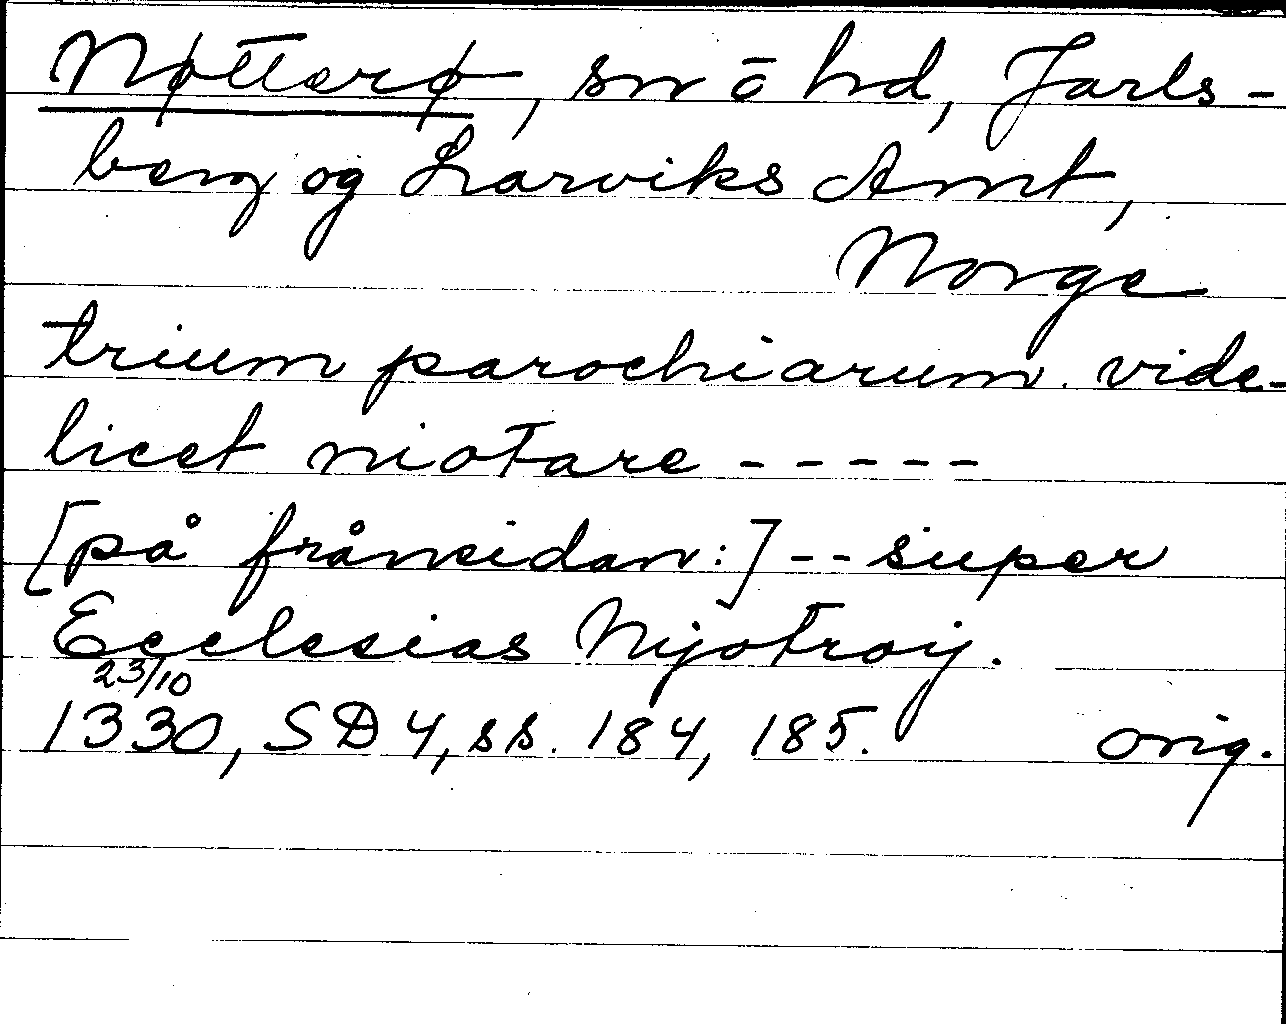 Nøtterø, sn ō hd, Jarls-
berg og Larviks Amt,
Norge
trium parochiarum. vide-
licet niotare -----
[på frånsidan:] -- super
Ecclesias Nijotroij.
23/10
1330, SD 4, ss. 184, 185. orig.